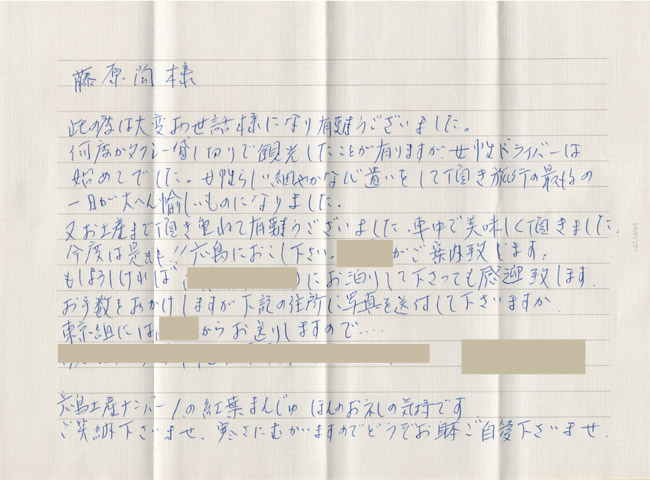 藤原尚様
此の度は大変お世話様になり有難うございました。
何度かタクシー貸し切りで観光したことが有りますが女性ドライバーは
始めてでした。女性らしい細やかな心遣いをして頂き旅行の最后の
一日が大へん愉しいものになりました。
又お土産まで頂き重ねて有難うございました。車中で美味しく頂きました。
今度は是非!!広島におこし下さい。がご案内致します。
もしよろしければ)にお泊りして下さっても感迎致します。
お手数をおかけしますが下記の住所に写真を送付して下さいますか
東京組にはからお送りしますので....
広島土産ナンバー1の紅葉まんじゅ ほんのお礼の気持です
ご笑納下さいませ。寒さにむかいますのでどうぞお身体ご自愛下さいませ。